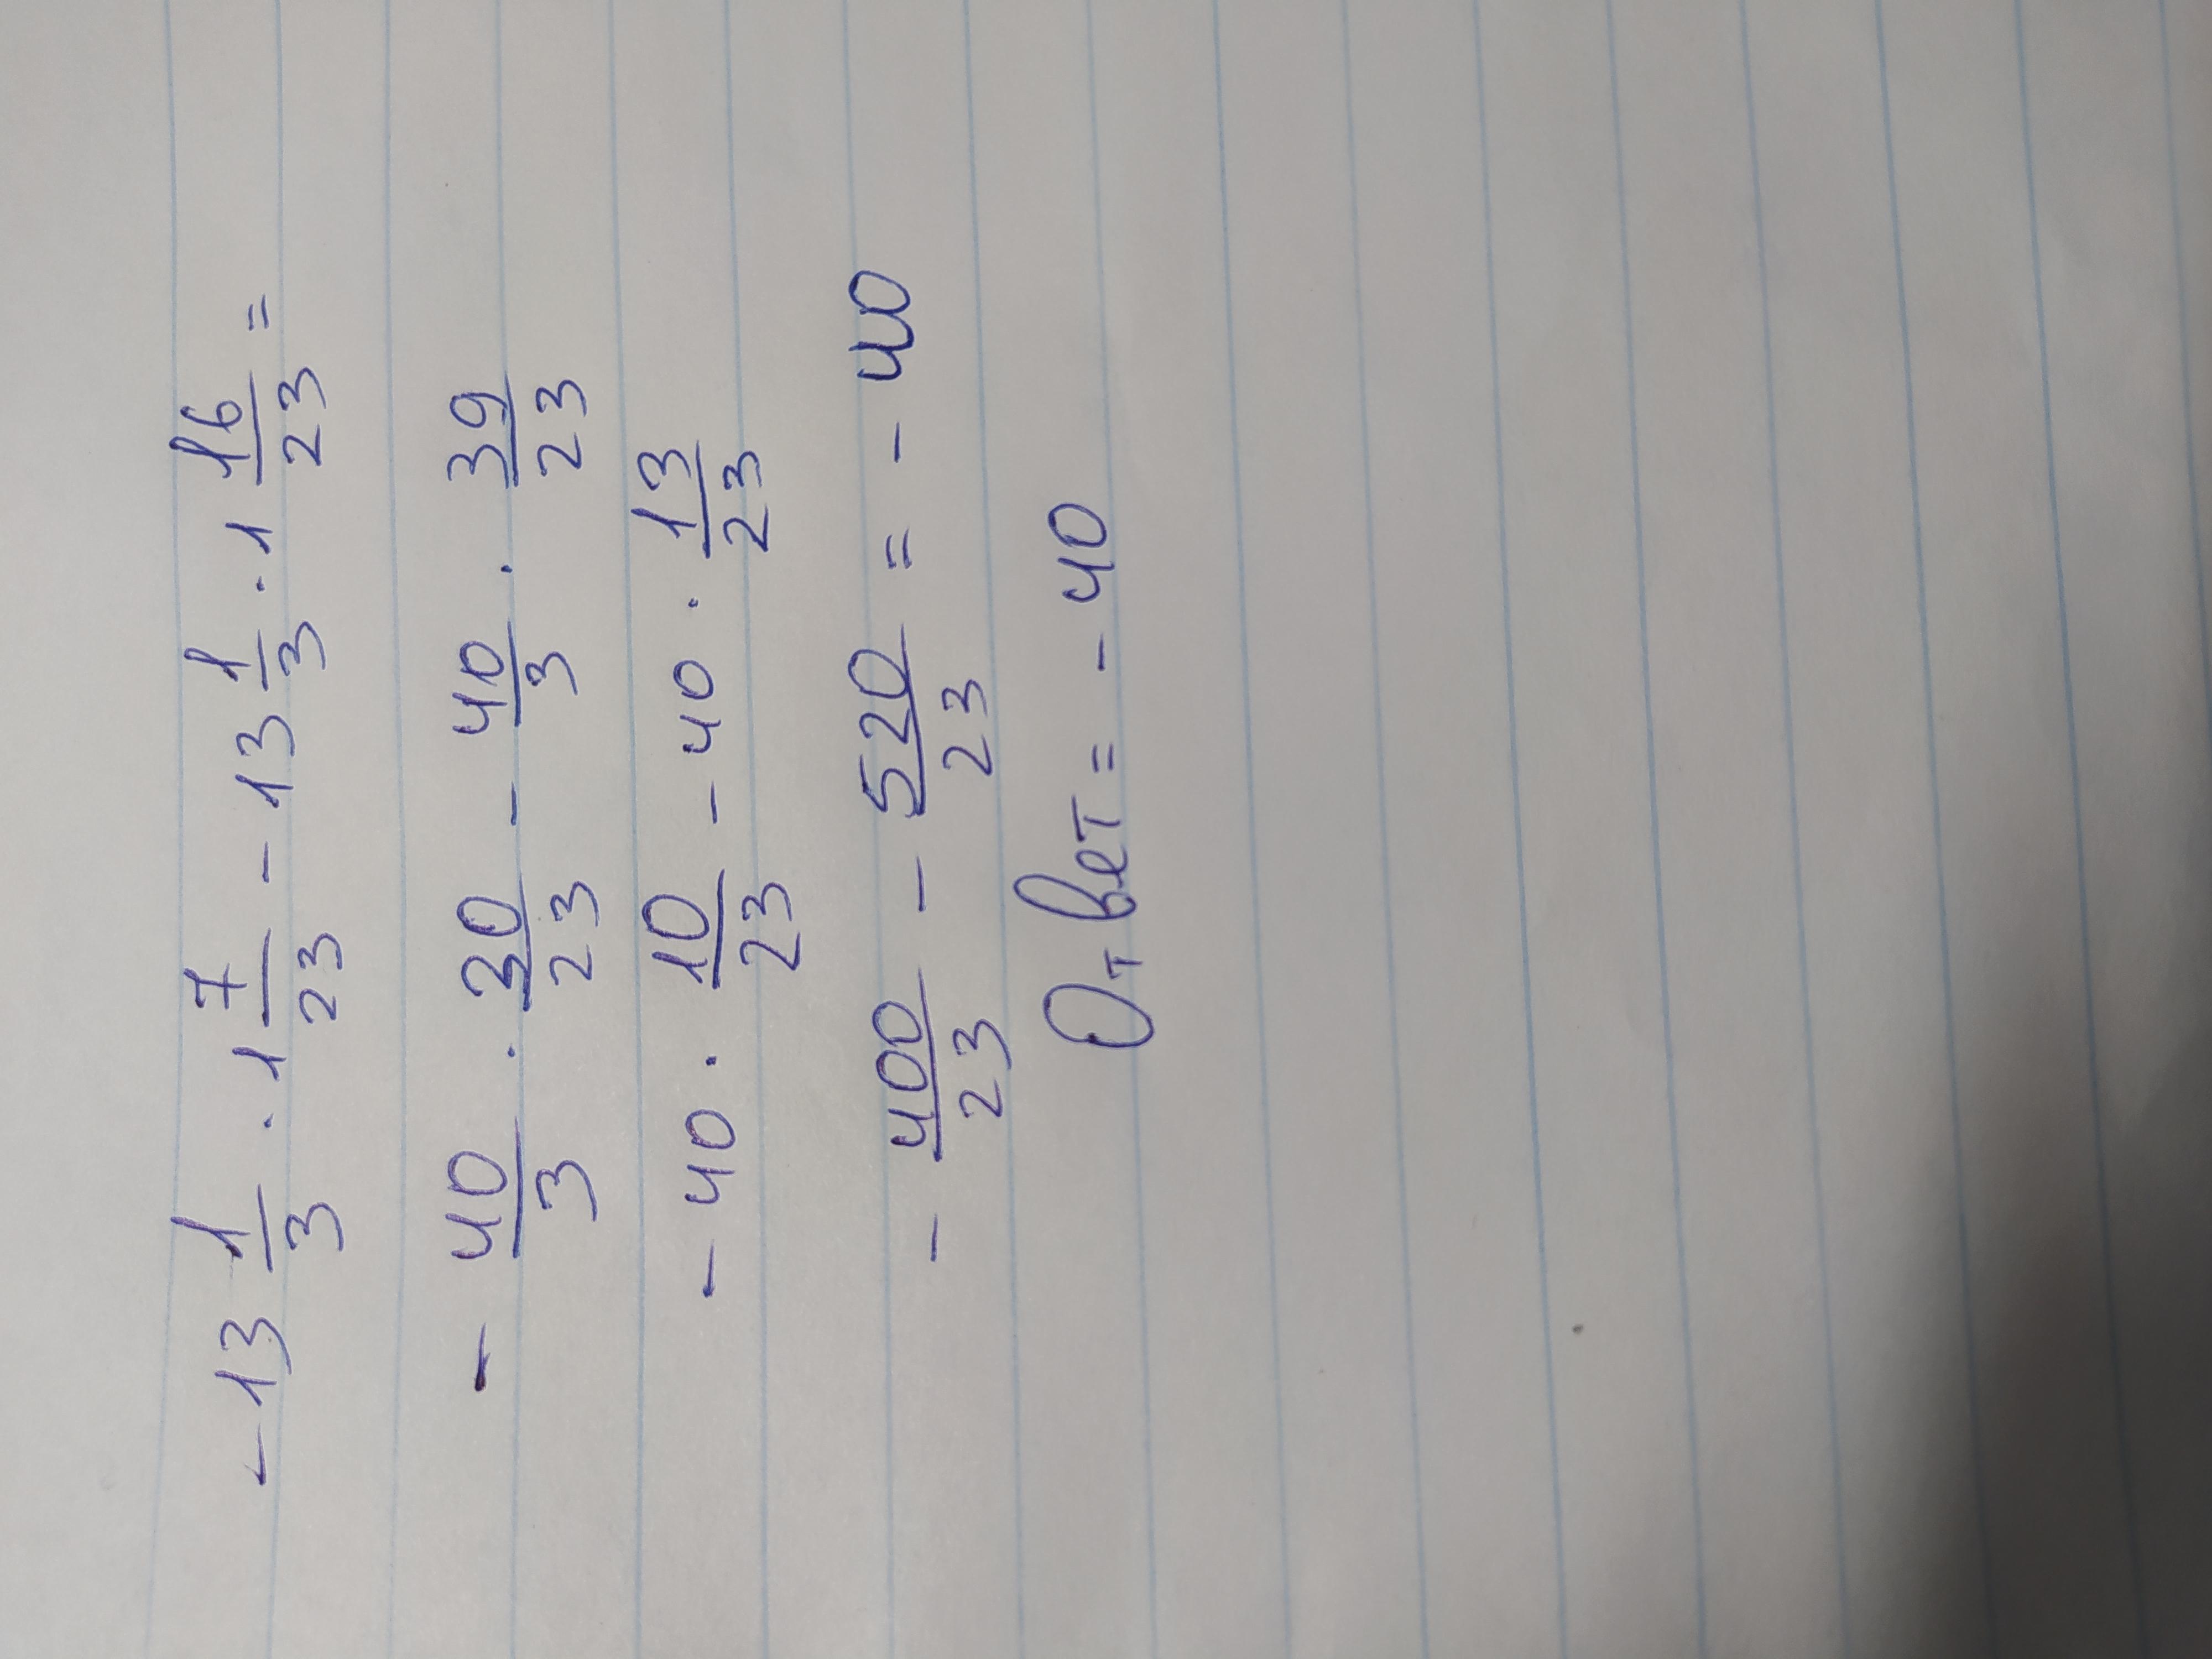 - 13 1/3 · 1 7/23 - 13 1/3 · 1 16/23 =
- 40/3 · 30/23 - 40/3 · 39/23
- 40 · 10/23 - 40 · 13/23
- 400/23 - 520/23 = - 40
Ответ = - 40